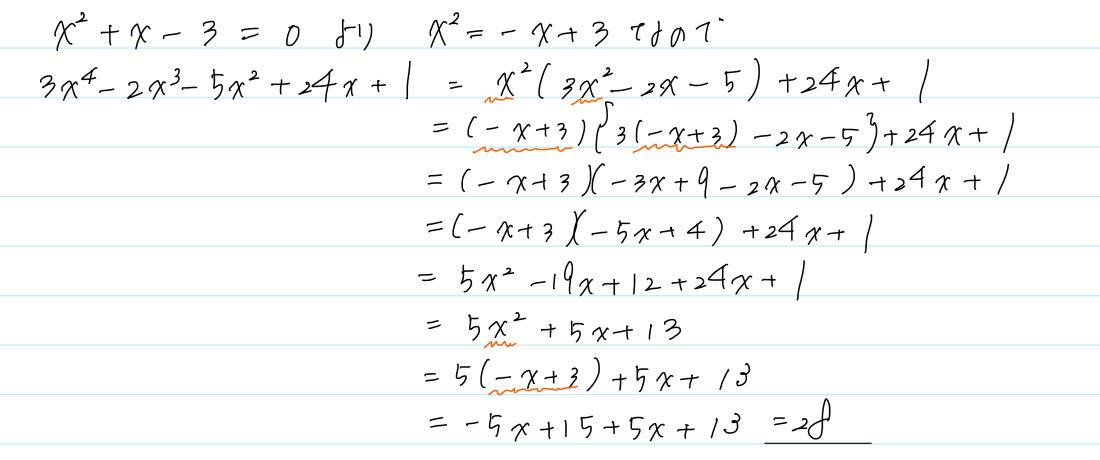 x² + x − 3 = 0 より x² = − x + 3 なので
3x⁴ − 2x³ − 5x² + 24x + 1 = x²(3x² − 2x − 5) + 24x + 1
= (− x + 3){3(− x + 3) − 2x − 5} + 24x + 1
= (− x + 3)(− 3x + 9 − 2x − 5) + 24x + 1
= (− x + 3)(− 5x + 4) + 24x + 1
= 5x² − 19x + 12 + 24x + 1
= 5x² + 5x + 13
= 5(− x + 3) + 5x + 13
= − 5x + 15 + 5x + 13 = 28